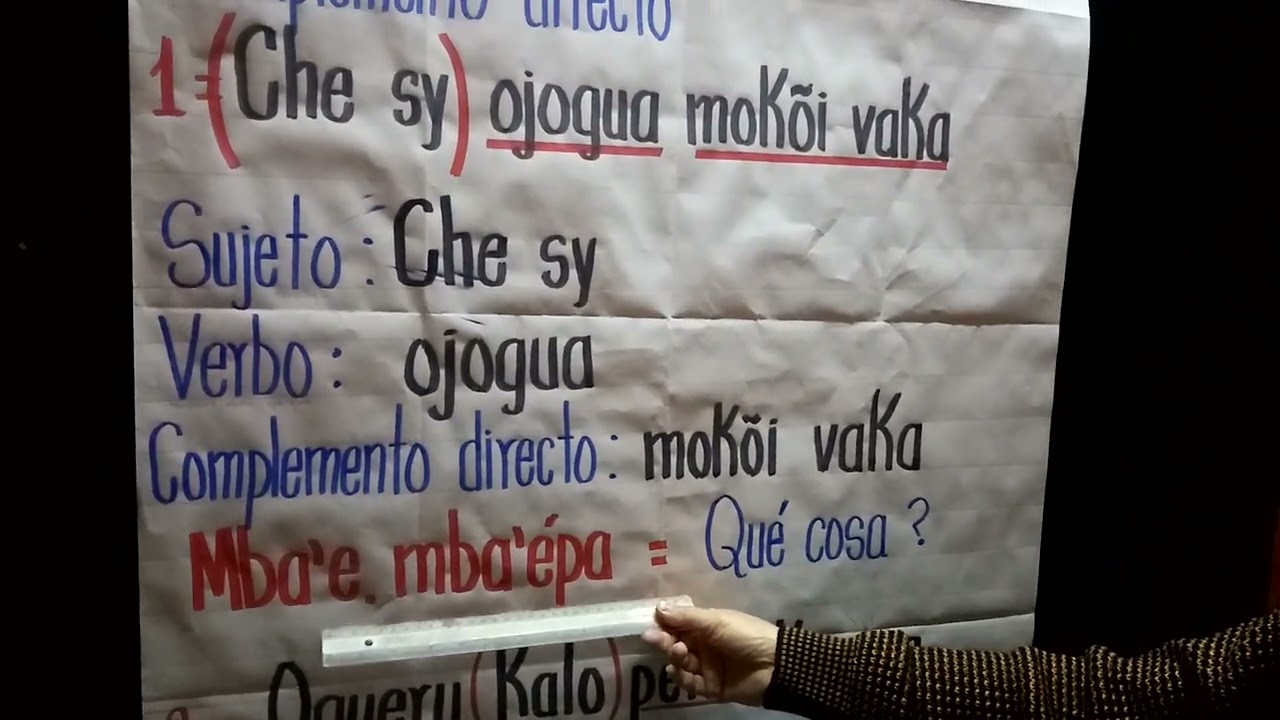 directo
1=(Che sy) ojogua moKõi vaKa
Sujeto: Che sy
Verbo: ojogua
Complemento directo: moKõi vaKa
Mba'e. mba'épa = Qué cosa?
Ogueru (Kalo)